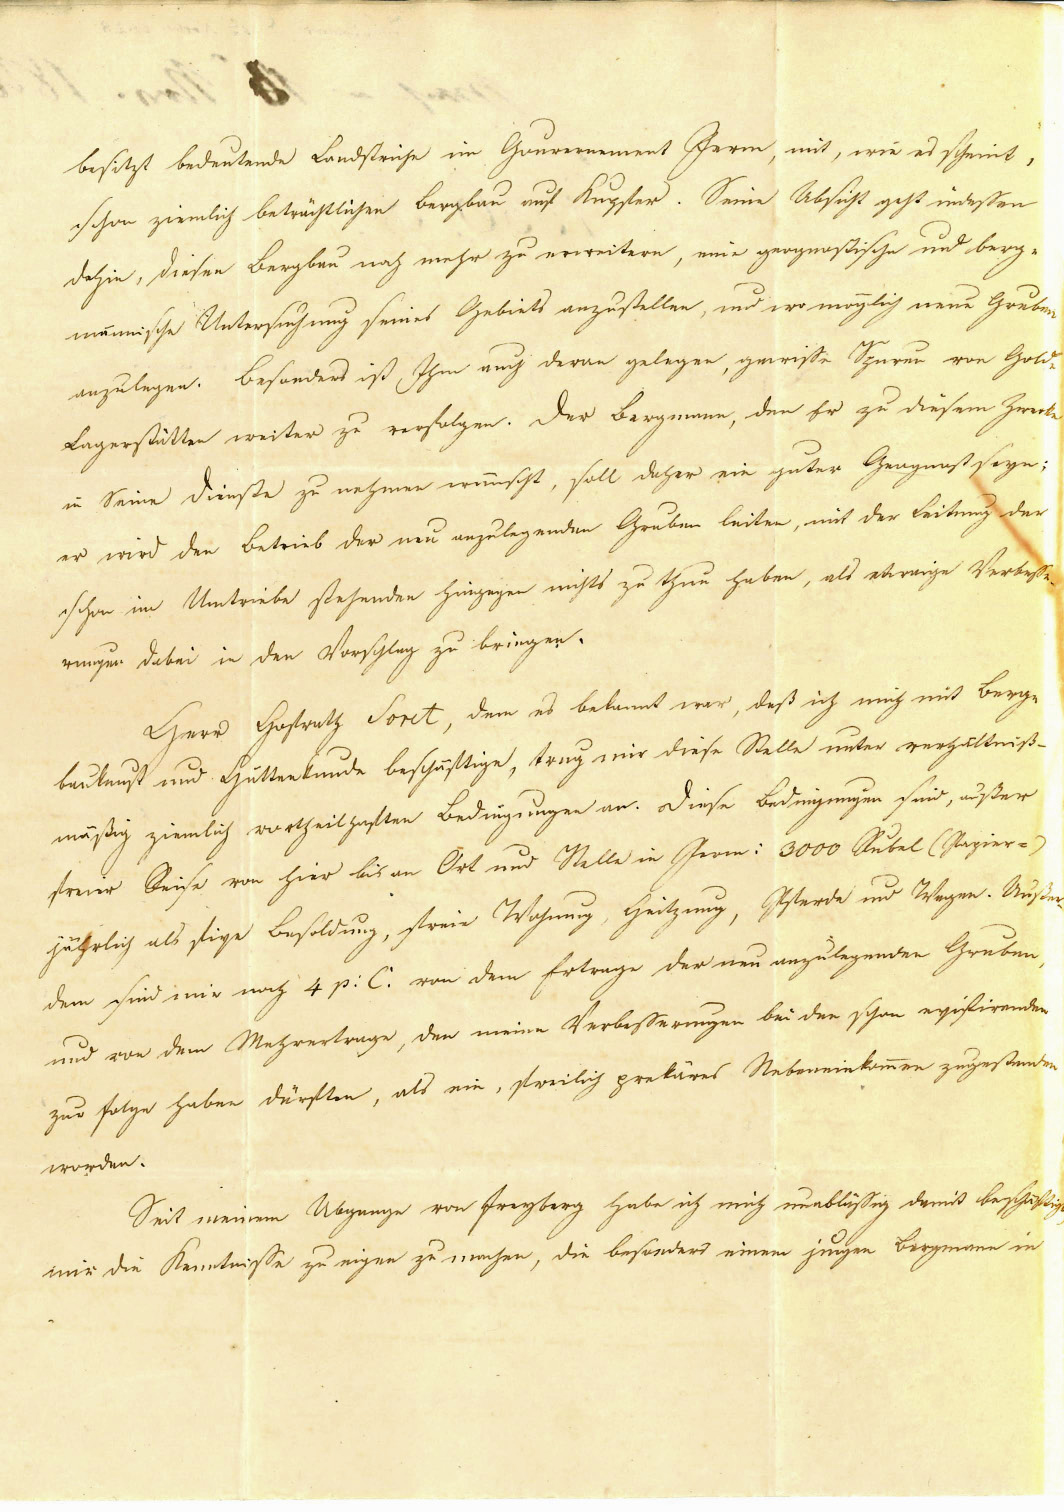 besitzt bedeutende Landstriche im Gouvernement Perm, mit, wie es scheint,
schon ziemlich beträchtlichen Bergbau auf Kupfer. Seine Absicht geht indessen
dahin, diesen Bergbau noch mehr zu erweitern, eine geognostische und berg=
männische Untersuchung seines Gebiets anzustellen, und wo möglich neue Gruben
anzulegen. Besonders ist Ihm auch daran gelegen, gewisse Spuren von Gold=
Lagerstätten weiter zu verfolgen. Der Bergmann, den Er zu diesem Zwecke
in Seine Dienste zu nehmen wünscht, soll daher ein guter Geognost seyn;
er wird den Betrieb der neu anzulegenden Gruben leiten, mit der Leitung der
schon im Umtriebe stehenden hingegen nichts zu thun haben, als etwaige Verbesse=
rungen dabei in den Vorschlag zu bringen.
Herr Hofrath Soret, dem es bekannt war, daß ich mich mit Berg=
baukunst und Hüttenkunde beschäftige, trug mir diese Stelle unter verhältniß=
mäßig ziemlich vortheilhaften Bedingungen an. Diese Bedingungen sind, außer
freier Reise von hier bis an Ort und Stelle in Perm: 3000 Rubel (Papier=)
jährlich als fixe Besoldung, freie Wohnung, Heitzung, Pferde und Wagen. Außer=
dem sind mir noch 4 p: C. von dem Ertrage der neu anzulegenden Gruben,
und von dem Mehrertrage, den meine Verbesserungen bei den schon existirenden
zur Folge haben dürften, als ein, freilich prekäres Nebeneinkommen zugestanden
worden.
Seit meinem Abgange von Freyberg habe ich mich unablässig damit beschäftigt,
mir die Kenntnisse zu eigen zu machen, die besonders einem jungen Bergmann in